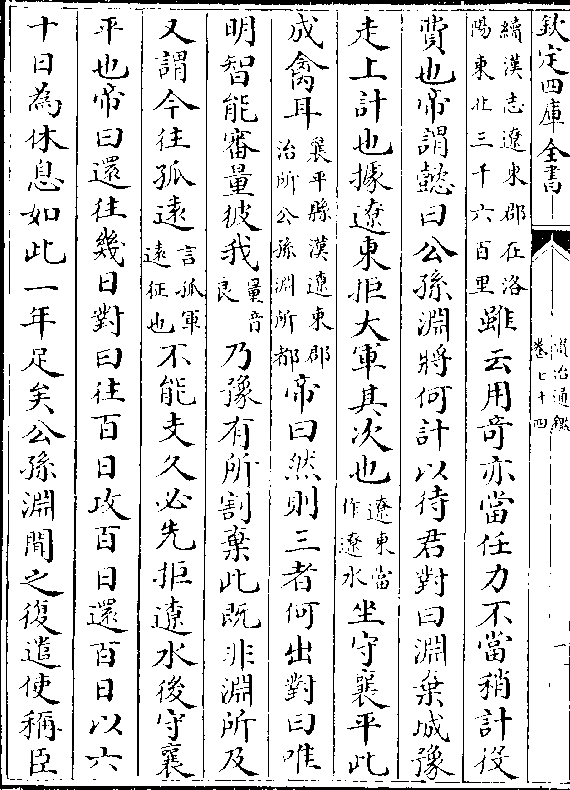 欽定四庫全書
資治通鑑
卷七十四
續漢志遼東郡在洛
陽東北三千六百里
雖云用竒亦當任力不當稍計役
費也帝謂懿曰公孫淵將何計以待君對曰淵棄城豫
走上計也據遼東拒大軍其次也
遼東當
作遼水
坐守襄平此
成禽耳
襄平縣漢遼東郡
治所公孫淵所都
帝曰然則三者何出對曰唯
明智能審量彼我
量音
良
乃豫有所割棄此既非淵所及
又謂今往孤遠
言孤軍
遠征也
不能支久必先拒遼水後守襄
平也帝曰還往幾日對曰往百日攻百日還百日以六
十日為休息如此一年足矣公孫淵聞之復遣使稱臣